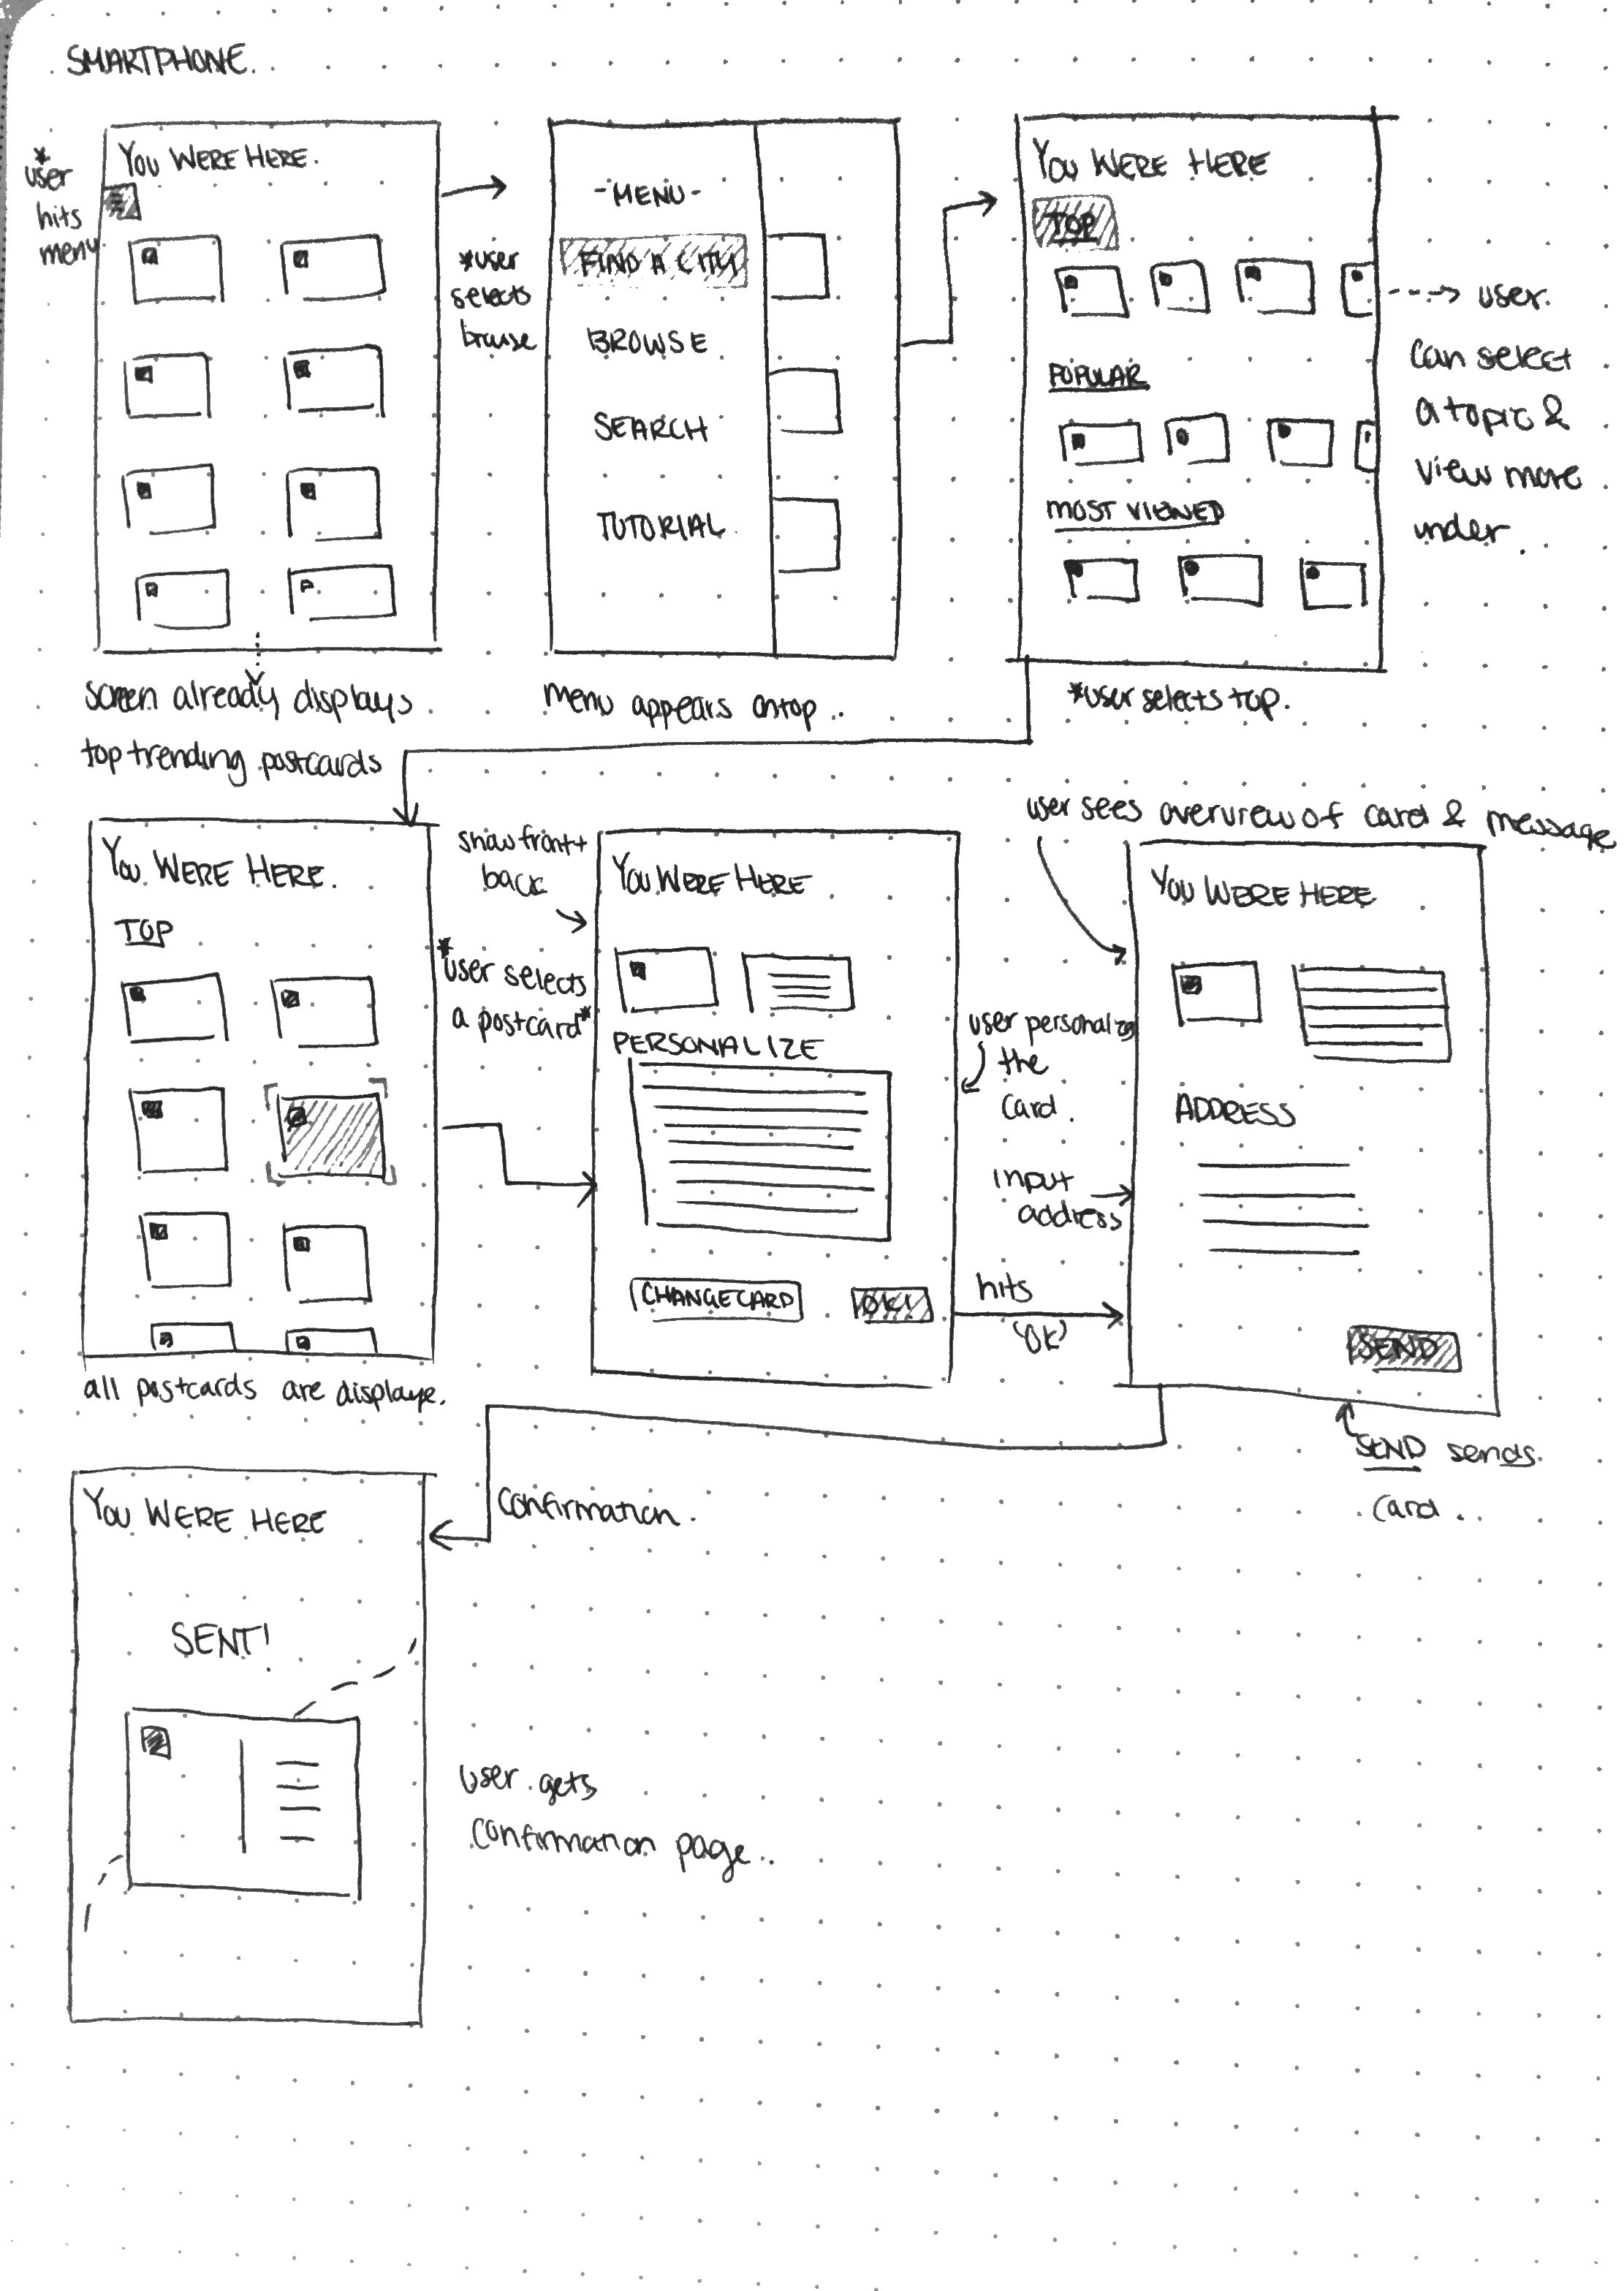 SMARTPHONE.
*
user
hits
menu.
YOU WERE HERE.
screen already displays
top trending postcards
*user
selects
browse
-MENU-
FIND A CITY
BROWSE
SEARCH
TUTORIAL
menu appears on top..
YOU WERE HERE
TOP
POPULAR
MOST VIEWED
*user selects top.
user
can select
a topic &
view more
under.
YOU WERE HERE.
TOP
all postcards are displaye.
show front+
back
*user selects
a postcard*
YOU WERE HERE
PERSONALIZE
CHANGE CARD
OK!
user personalizes
the
card.
input
address
hits
'OK'
user sees overview of card & message
YOU WERE HERE
ADDRESS
SEND
SEND sends
card.
confirmation.
YOU WERE HERE
SENT!
user gets
confirmation page..